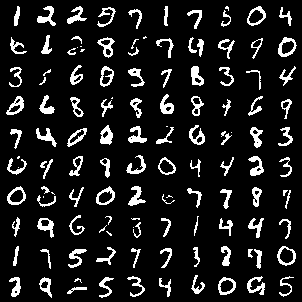 1 2 2 8 7 1 7 5 0 4
6 1 2 8 5 7 9 9 9 0
3 5 6 8 9 7 8 3 7 4
8 6 8 4 8 6 8 9 6 9
7 4 0 0 2 2 0 8 8 3
0 9 2 9 0 0 4 4 2 3
0 3 4 0 2 0 7 7 8 7
9 9 6 2 3 7 1 4 4 3
1 7 5 2 7 7 3 8 9 0
2 9 2 5 3 4 6 0 9 5